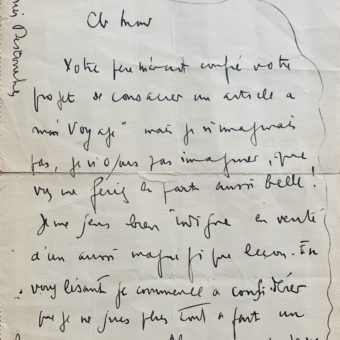 Votre père m'avait confié votre
projet de consacrer un article à
mon "Voyage" mais je n'imaginais
pas, je n'osais pas imaginer, que
vous me feriez la part aussi belle !
Je me sens bien indigne en vérité
d'un aussi magnifique leçon. En
vous lisant je commence à considérer
que je ne suis plus tout à fait un